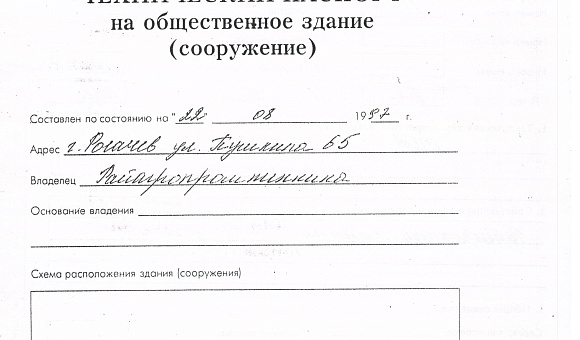 ТЕХНИЧЕСКИЙ ПАСПОРТ
на общественное здание
(сооружение)
Составлен по состоянию на "22 08 1997 г.
Адрес г. Рогачев ул. Пушкина 65
Владелец Райагропромтехника
Основание владения
Схема расположения здания (сооружения)